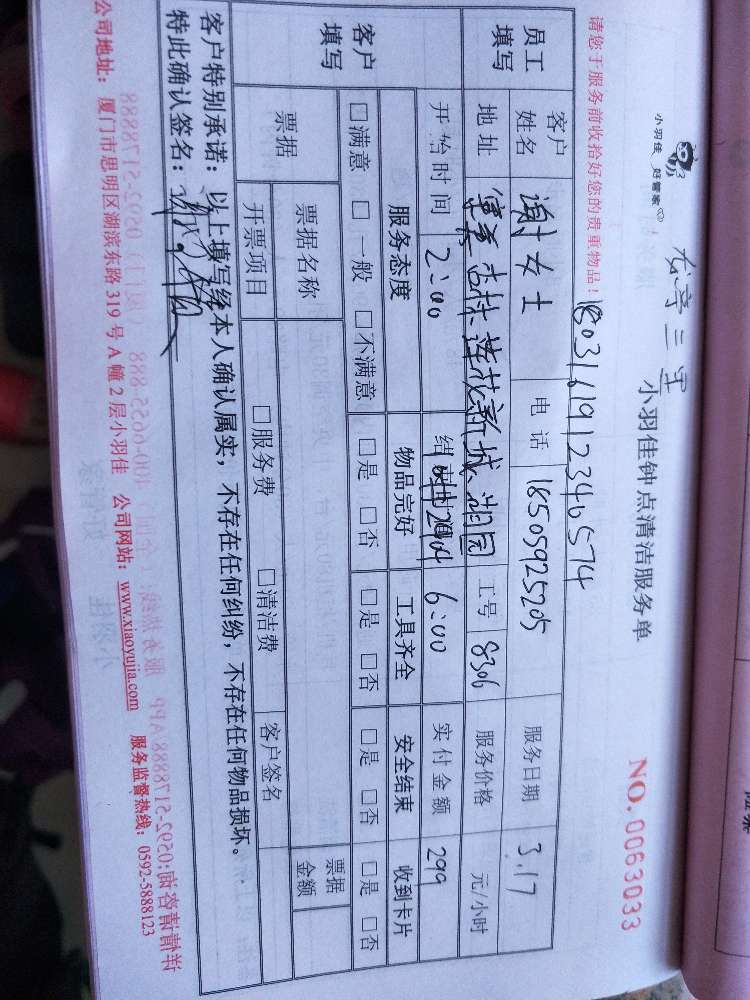 小羽佳 好管家
小羽佳钟点清洁服务单
NO. 0063033
请您于服务前收拾好您的贵重物品!
180316191234b574
员工填写
客户姓名 谢女士 电话 18505925205 服务日期 3.17
地址 莲花新城 工号 8306 服务价格 元/小时
开始时间 2:00 结束时间 6:00 实付金额 299
客户填写
服务态度 物品完好 工具齐全 安全结束 收到卡片
□满意 □一般 □不满意 □是 □否 □是 □否 □是 □否 □是 □否
票据 票据名称 □服务费 □清洁费 客户签名 票据金额
开票项目
客户特别承诺:以上填写经本人确认属实,不存在任何纠纷,不存在任何物品损坏。
特此确认签名:
公司地址:厦门市思明区湖滨东路 319 号 A 幢 2 层小羽佳 公司网站:www.xiaoyujia.com 服务监督热线:0592-5888123